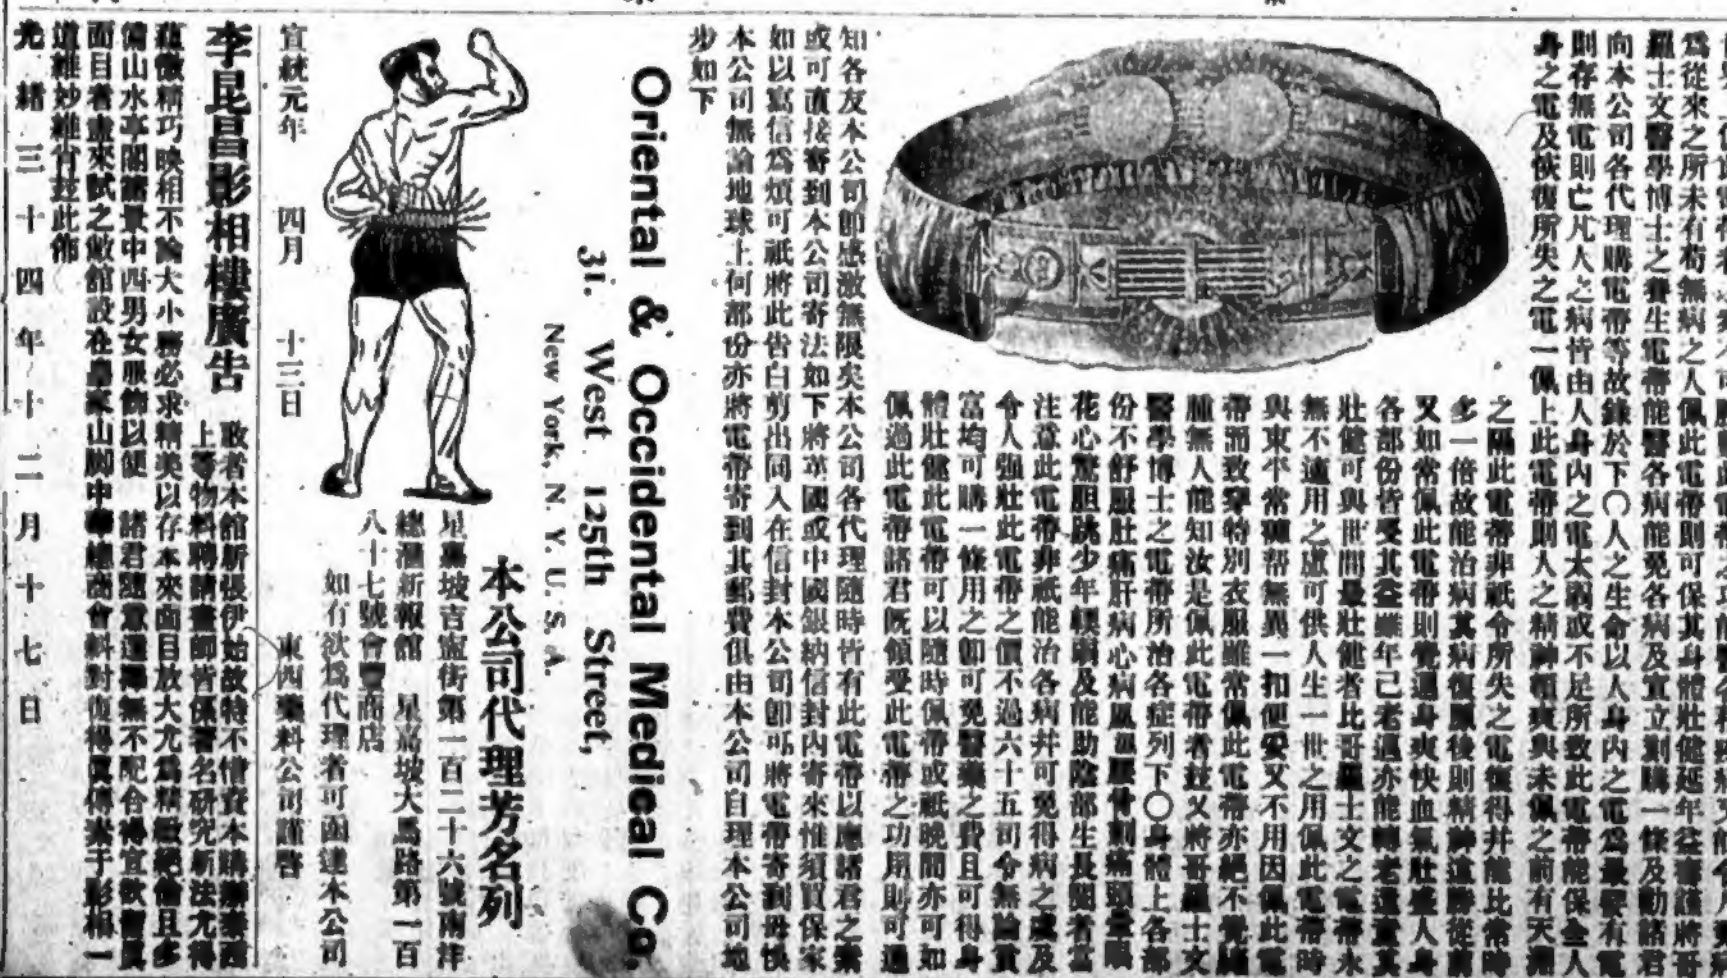 為從來之所未有苟無病之人佩此電帶則可保其身體壯健延年益壽謹將哥
羅士文醫學博士之養生電帶能醫各病能免各病及宜立刻購一條及勸諸君
向本公司各代理購電帶等故錄於下〇人之生命以人身內之電為最要有電
則存無電則亡凡人之病皆由人身內之電太弱或不足所致此電帶能保全人
身之電及恢復所失之電一佩上此電帶則人之精神頓爽與未佩之前有天淵
之隔此電帶非祇令所失之電復得并能比常時
多一倍故能治病其病復原後則精神遠勝從前
又如常佩此電帶則覺遍身爽快血氣壯盛人身
各部份皆受其益雖年已老邁亦能轉老還童其
壯健可與世間最壯健者比哥羅士文之電帶永
無不適用之慮可供人生一世之用佩此電帶時
與束平常褲帶無異一扣便妥又不用因佩此電
帶而致穿特別衣服雖常佩此電帶亦絕不覺
腫無人能知汝是佩此電帶者玆又將哥羅士文
醫學博士之電帶所治各症列下〇身體上各部
份不舒服肚痛肝病心病風濕腰骨刺痛頭暈眼
花心驚胆跳少年軟弱及能助陰部生長閱者當
注意此電帶非祇能治各病并可免得病之虞及
令人強壯此電帶之價不過六十五司令無論貧
富均可購一條用之卽可免醫藥之費且可得身
體壯健此電帶可以隨時佩帶或祇晚間亦可如
佩過此電帶諸君既領受此電帶之功用則可通
知各友本公司卽感激無限矣本公司各代理隨時皆有此電帶以應諸君之需
或可直接寄到本公司寄法如下將英國或中國銀納信封內寄來惟須買保家
如以寫信為煩可祇將此告白剪出同人在信封本公司卽可將電帶寄到毋悞
本公司無論地球上何部份亦將電帶寄到其郵費俱由本公司自理本公司地
步如下
Oriental & Occidental Medical Co.
31. West 125th Street,
New York, N. Y. U. S. A.
本公司代理芳名列
星嘉坡吉寧街第一百二十六號南洋
總滙新報館 星嘉坡大馬路第一百
八十七號會豐商店
如有欲為代理者可函達本公司
宣統元年 四月 十三日 東西藥料公司謹啓
李昆昌影相樓廣告
敬者本館新張伊始故特不惜資本購辦泰西
上等物料聘請畫師皆係著名研究新法尤得
蘊微精巧映相不論大小務必求精美以存本來面目放大尤為精緻絕倫且多
備山水亭閣富景中西男女服飾以便 諸君隨意選擇無不配合得宜欲留真
面目者盡來試之敝館設在皇家山脚中華總商會斜對復得真傳業于影相一
道雖妙維肖玆此佈
光緒三十四年十二月十七日